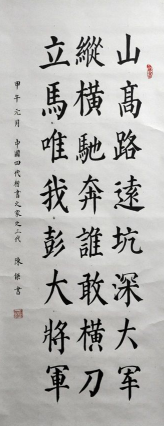 山髙路遠坑深大军
縱橫馳奔誰敢橫刀
立馬唯我彭大將軍
甲午元月 中國四代楷書之家之二代 陳傑書